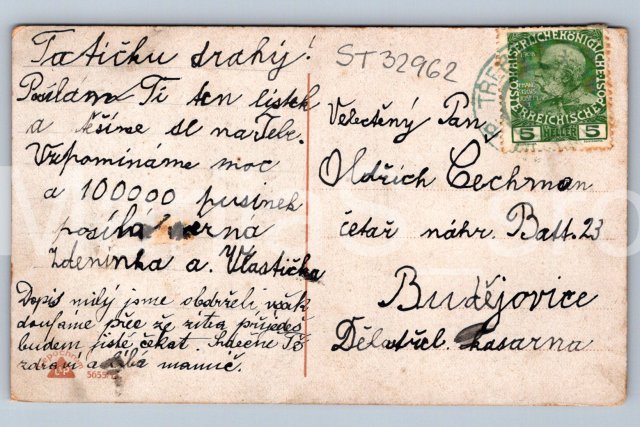 Tatíčku drahý!
Posílám Ti ten lístek
a těšíme se na Tebe.
Vzpomínáme moc
a 100000 pusinek
posílá věrna
Zdeninka a. Vlastička
Dopis milý jsme obdrželi, však
doufáme přee že zítra přijedeš
budem jistě čekat. Srdečně Tě
zdraví a líbá mamič.
ST 32962
Velectěný Pan
Oldřich Cechman
četař náhr. Batt. 23
Budějovice
Dělostřel. kasarna
KAISERLICHE KÖNIGLICHE
ÖSTERREICHISCHE
5 HELLER 5
TŘE
5655